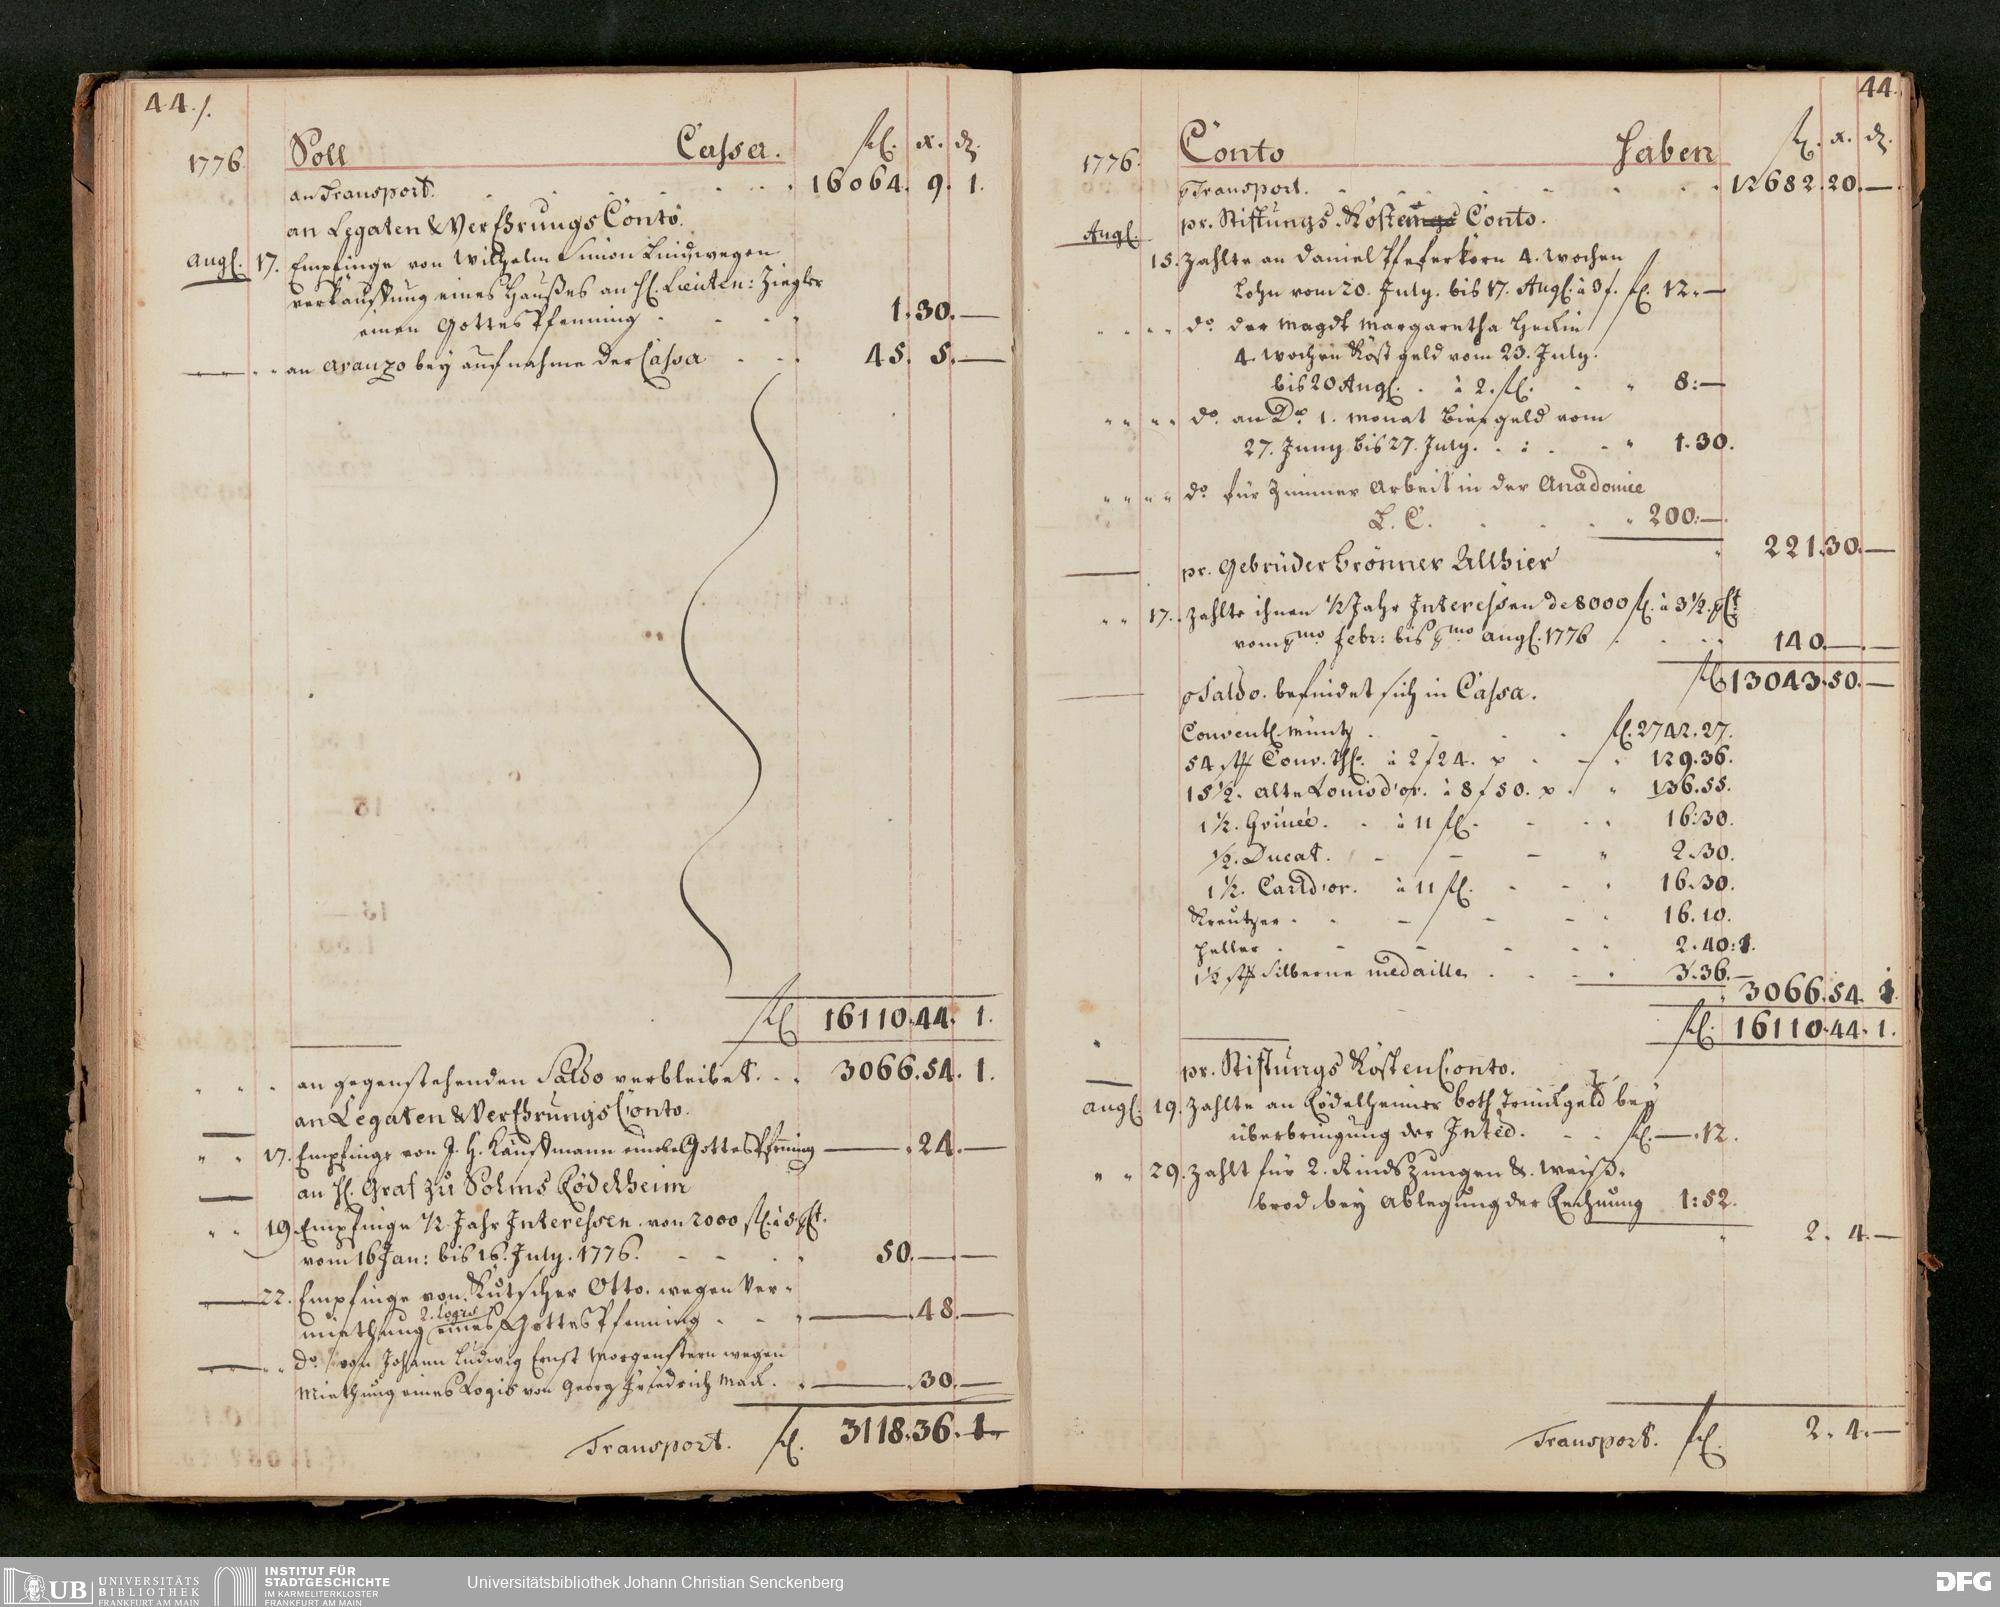 44./.
1776. Soll Cassa. fl. x. d.
an Transport. 16064. 9. 1.
an Legaten & Verehrungs Conto.
Augl. 17. Empfinge von Wilhelm Simon wegen
verkauffung eines Hausses an H. Lieuten: Ziegler
einen Gottes Pfenning 1. 30. —
an avanzo bey aufnahme der Cassa 45. 5. —
fl 16110. 44. 1.
an gegenstehenden Saldo verbleibet. 3066. 54. 1.
an Legaten & Verehrungs Conto.
17. Empfinge von J. H. Kauffmann Gottes Pfenning — . 24. —
an H. Graf zu Solms Rödelheim
19. Empfinge 1/2 Jahr Interessen. von 2000 fl. à 5 pCt.
vom 16 Jan: bis 16. July. 1776. 50. — —
22. Empfinge von Kutscher Otto. wegen Ver-
2. logis
miethung eines Gottes Pfenning — . 48. —
do von Johann Ludwig Ernst Morgenstern wegen
Miethung eines Logis von Georg Friedrich Mack. — . 30. —
Transport. fl. 3118. 36. 1.
44.
1776. Conto Haben fl. x. d.
p Transport. 12682. 20. —
Augl. pr. Stifftungs Kosten Conto.
15. Zahlte an Daniel Pfeferkorn 4. Wochen
Lohn vom 20. July. bis 17. Augl. à 3 f. fl. 12. —
do. der Magdt Margaretha
4. Wochen Kost geld vom 23. July.
bis 20 Augl. à 2. fl. 8: —
do. an Do. 1. Monat Bier geld vom
27. Juny bis 27. July. 1. 30.
do. für Zimmer Arbeit in der Anadomie
L. C. 200: —
221. 30. —
pr. Gebrüder Brönner Allhier
17. Zahlte ihnen 1/2 Jahr Interessen de 8000 fl. à 3 1/2. pCt
vom mo Febr: bis mo Augl. 1776 140. — —
fl 13043. 50. —
p Saldo. befindet sich in Cassa.
Convent. Müntz fl. 2742. 27.
54 stk Conv. Thl. à 2 f 24. x 129. 36.
15 1/2. alte Louisd'or. à 8 f 50. x. 136. 55.
1 1/2. Guinée. à 11 fl. 16. 30.
1/2. Ducat. 2. 30.
1 1/2. Carld'or. à 11 fl. 16. 30.
Kreutzer 16. 10.
Heller 2. 40: 1.
1 1/2 stk Silberne medaille 3. 36. —
3066. 54. 1.
fl. 16110. 44. 1.
pr. Stifftungs Kosten Conto.
Augl. 19. Zahlte an Rödelheimer Both Trinckgeld bey
überbringung der Intēd. fl. — . 12.
29. Zahlt für 2. Rinds Zungen & Weiss-
brod bey Ablegung der Rechnung 1: 52.
2. 4. —
Transport. fl. 2. 4. —
UB UNIVERSITÄTS
BIBLIOTHEK
FRANKFURT AM MAIN
INSTITUT FÜR
STADTGESCHICHTE
IM KARMELITERKLOSTER
FRANKFURT AM MAIN
Universitätsbibliothek Johann Christian Senckenberg
DFG